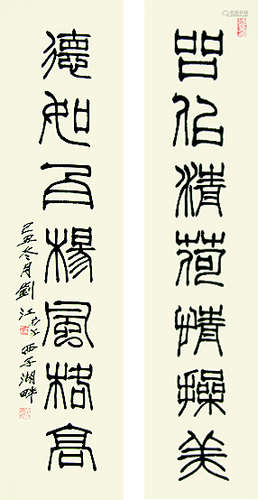 品似清荷情操美
德如白楊風格高
己丑冬月劉江
西子湖畔